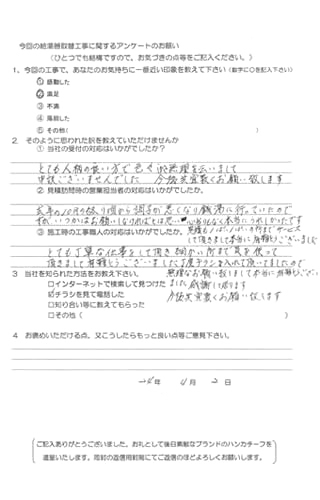 今回の給湯器取替工事に関するアンケートのお願い
（ひとつでも結構ですので、お気づきの点等をご記入ください。）
1、今回の工事で、あなたのお気持ちに一番近い印象を教えて下さい（数字に〇を記入下さい）
① 感動した
② 満足
③ 不満
④ 落胆した
⑤ その他（　　　）
2　そのように思われた訳を教えていただけませんか
① 当社の受付の対応はいかがでしたか？
とても人柄の良い方で色々御無理を云いまして
申訳ございませんでした 今後共宜敷くお願い致します
② 見積訪問時の営業担当者の対応はいかがでしたか。
10月の 頃から調子が悪くなり銭湯に行っていたので
いつかはお願いしなければとは思い 本当にうれしかったです
③ 施工時の工事職人の対応はいかがでしたか。
見積も サービス
して頂きまして本当に有難とうございました
とても丁寧な仕事をして頂き細かい所まで気を使って
頂きまして有難とうございました チラシを入れて頂いてましたので
3　当社を知られた方法をお教え下さい。
無理なお願い致しまして本当に有難とうござい
□インターネットで検索して見つけた
ました 感謝して居ります
☑チラシを見て電話した
今後共宜敷くお願い致します
□知り合い等に教えてもらった
□その他（　　　）
4　お褒めいただける点、又こうしたらもっと良い点等ご意見下さい。
年 11月 2日
ご記入ありがとうございました。お礼として後日素敵なブランドのハンカチーフを
進呈いたします。同封の返信用封筒にてご返信のほどよろしくお願いします。